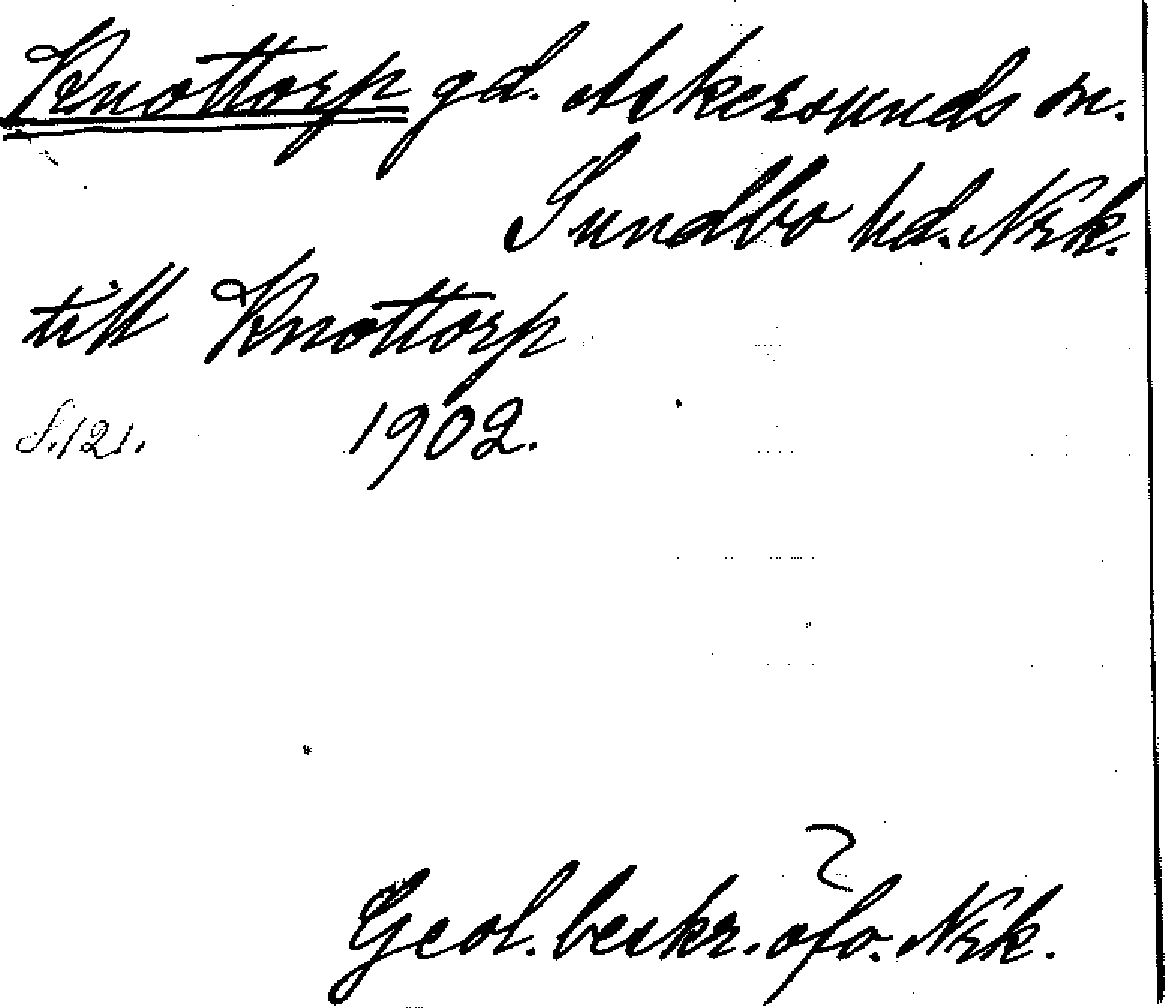 Knottorp gd. Askersunds sn.
Sundbo hd. Nrk.
till Knottorp
S.121. 1902.
Geol. beskr. öfv. Nrk.